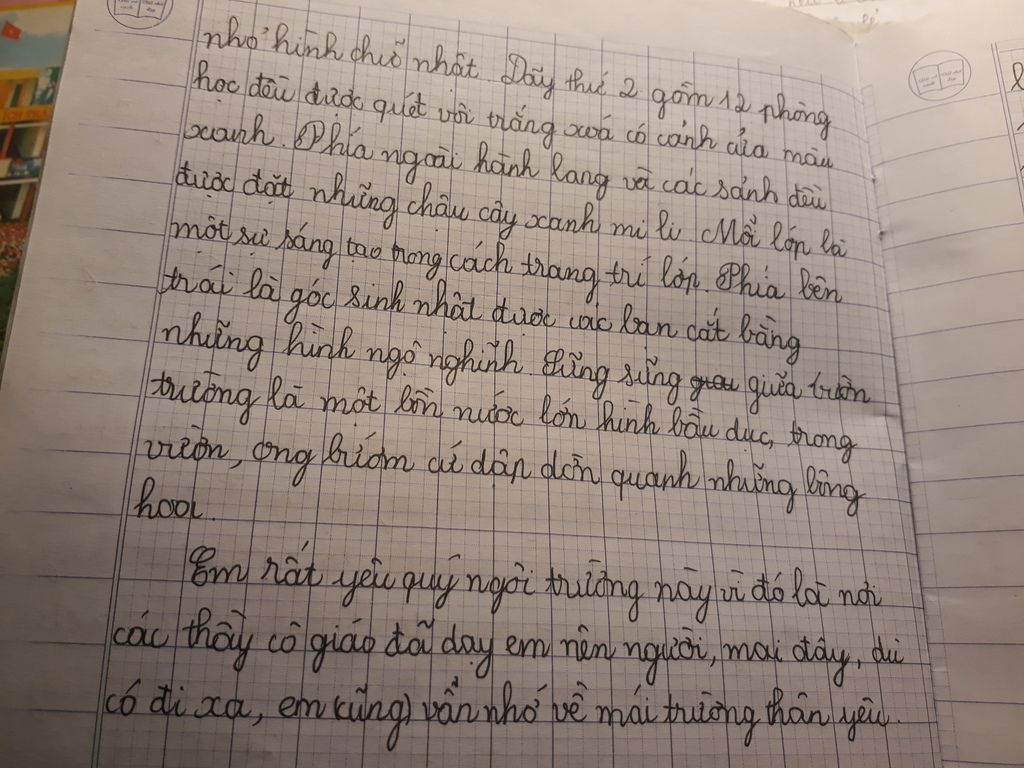 nhỏ hình chữ nhật. Dãy thứ 2 gồm 12 phòng
học đều được quét vôi trắng xoá có cánh cửa màu
xanh. Phía ngoài hành lang và các sảnh đều
được đặt những chậu cây xanh mi li. Mỗi lớp là
một sự sáng tạo trong cách trang trí lớp. Phía bên
trái là góc sinh nhật được các bạn cắt bằng
những hình ngộ nghĩnh. Sừng sững giữa trườn
trường là một bồn nước lớn hình bầu dục, trong
vườn, ong bướm cứ dập dờn quanh những bông
hoa.
Em rất yêu quý ngôi trường này vì đó là nơi
các thầy cô giáo đã dạy em nên người, mai đây, dù
có đi xa, em (cũng) vẫn nhớ về mái trường thân yêu.